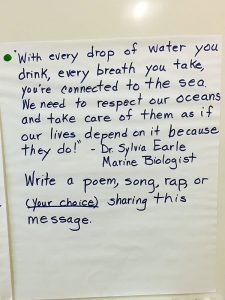 "With every drop of water you
drink, every breath you take,
you're connected to the sea.
We need to respect our oceans
and take care of them as if
our lives depend on it because
they do!" - Dr. Sylvia Earle
Marine Biologist
Write a poem, song, rap, or
(your choice) sharing this
message.